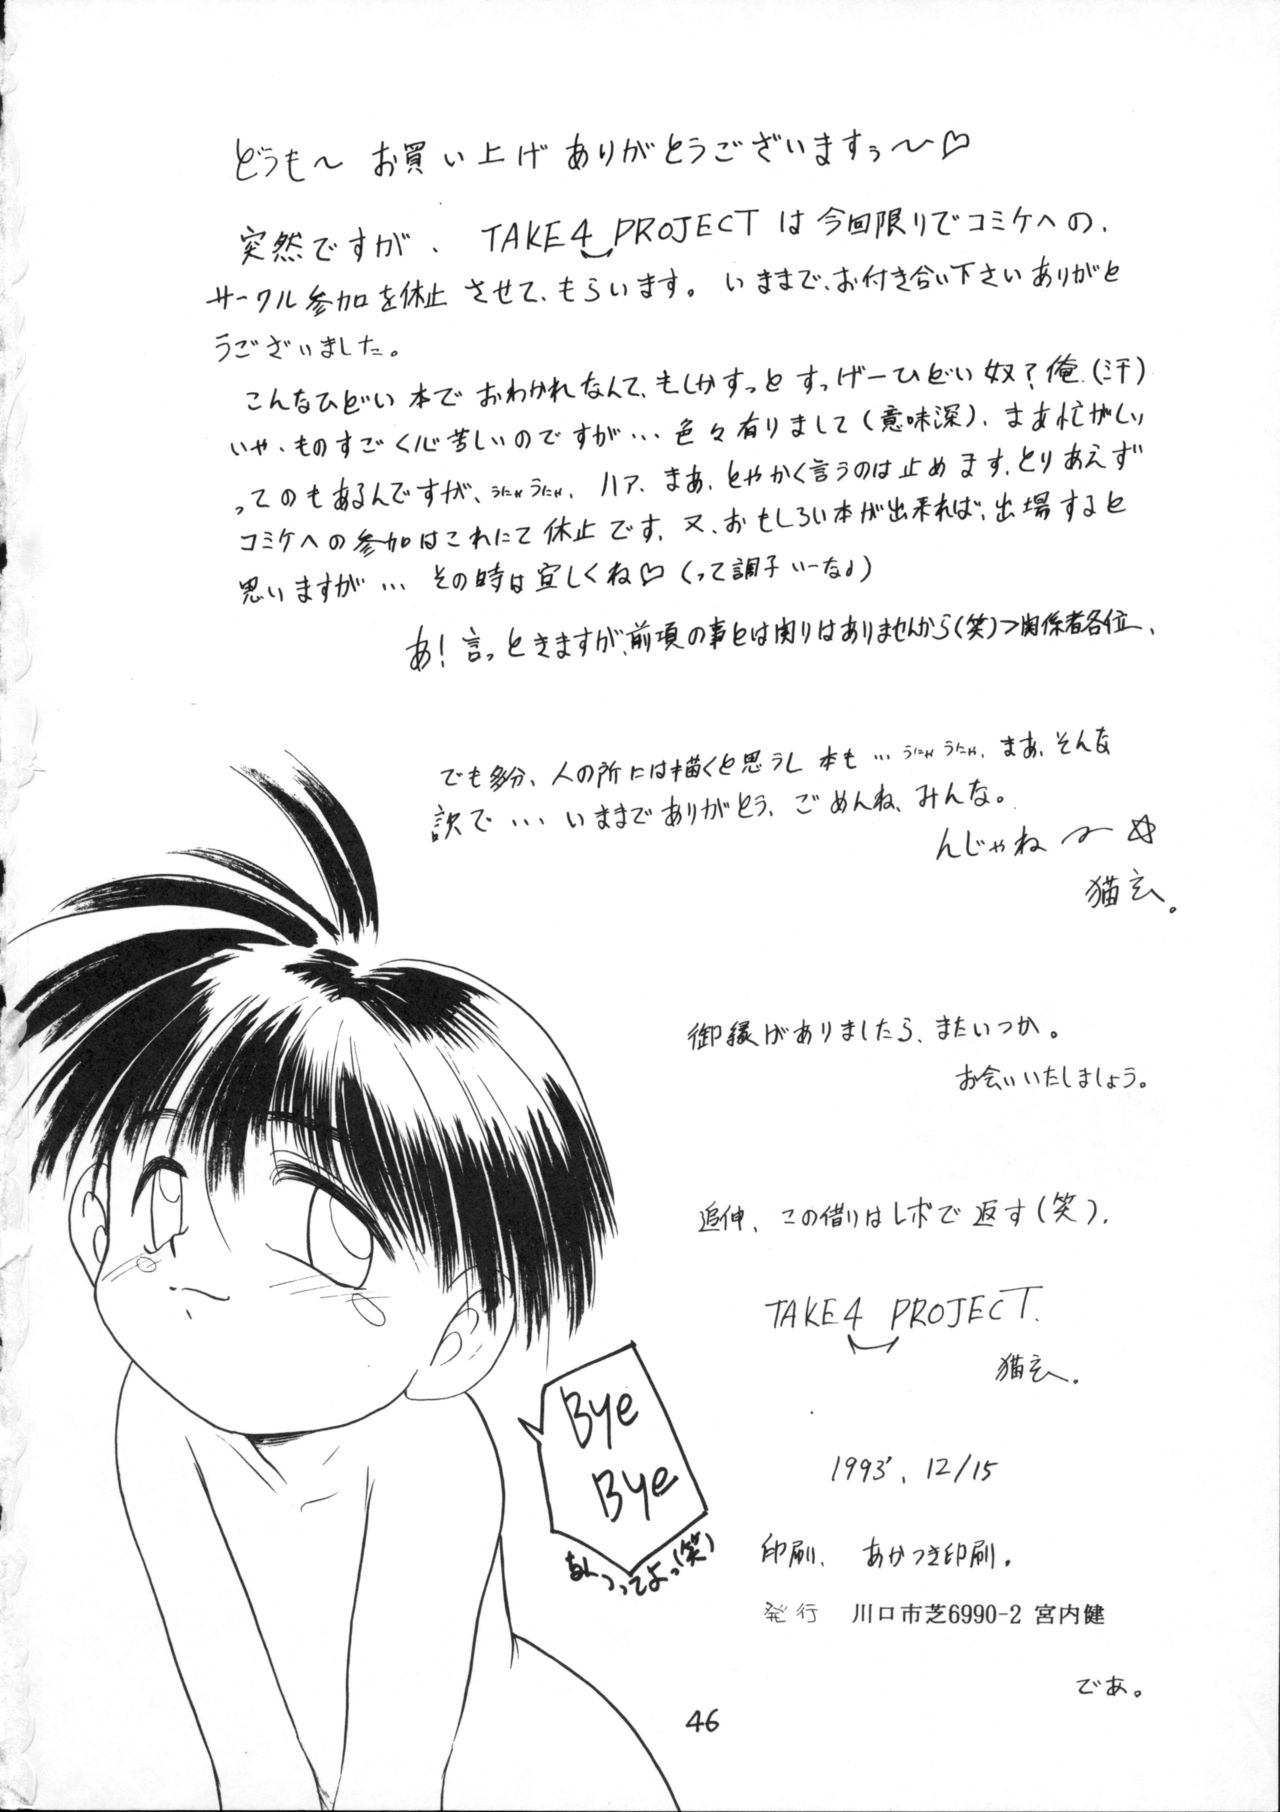 どうも〜 お買い上げありがとうございますぅ〜♡
突然ですが、TAKE4 PROJECTは今回限りでコミケへの、
サークル参加を休止させて、もらいます。いままで、お付き合い下さいありがと
うございました。
こんなひどい本でおわかれなんて、もしかすっとすっげーひどい奴?俺、(汗)
いや、ものすごく心苦しいのですが…色々有りまして(意味深)、まあ忙がしい
ってのもあるんですが、うにゃうにゃ、ハア、まあ、とやかく言うのは止めます、とりあえず
コミケへの参加はこれにて休止です、又、おもしろい本が出来れば、出場すると
思いますが…その時は宜しくね♡(って調子いーな♪)
あ!言っときますが、前項の事とは関りはありませんから(笑)>関係者各位、
でも多分、人の所には描くと思うし本も…うにゃうにゃ、まあ、そんな
訳で…いままでありがとう、ごめんね、みんな。
んじゃね〜☆
猫玄。
御縁がありましたら、またいつか。
お会いいたしましょう。
追伸、この借りはレボで返す(笑)、
TAKE4 PROJECT.
猫玄。
Bye
Bye
ってよっ(笑)
1993', 12/15
印刷、あかつき印刷。
発行 川口市芝6990-2 宮内健
であ。
46